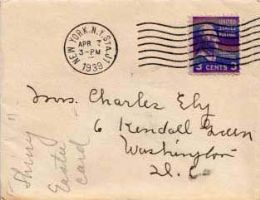 NEW YORK, N.Y. STA. J1
APR 7
3-PM
1939
UNITED
STATES
POSTAGE
3 CENTS 3
Mrs. Charles Ely
6 Kendall Green
Washington
D. C.
Easter
card